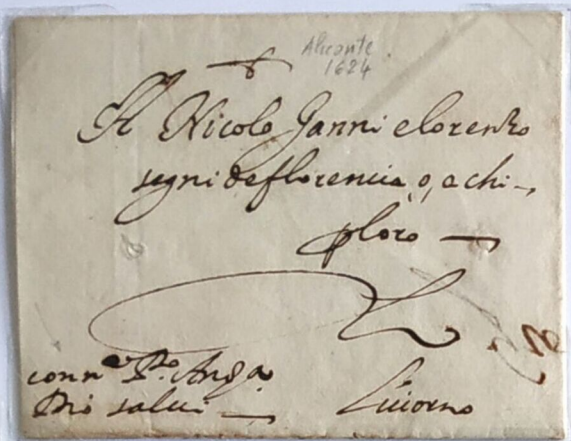 Alicante
1624
Nicolo Ganni e lorenzo
segni de florencia, o, a chi
ploro
conn
Dio salvi
Liuorno